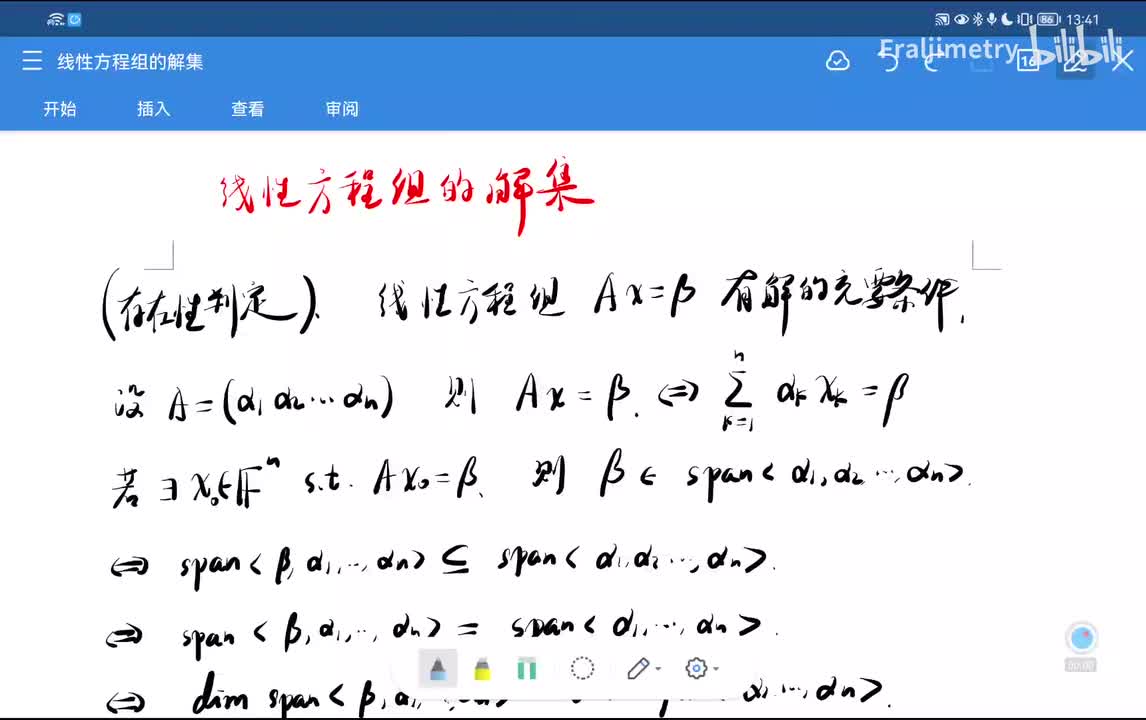 86 13:41
线性方程组的解集
Fraljimetry bilibili
16
开始 插入 查看 审阅
线性方程组的解集
(存在性判定). 线性方程组 Ax=β 有解的充要条件,
设 A=(α₁ α₂ ⋯ αn) 则 Ax=β. ⟺ ∑ₖ₌₁ⁿ αₖ xₖ = β
若 ∃ x₀∈𝔽ⁿ s.t. Ax₀=β. 则 β ∈ span<α₁,α₂ ⋯,αn>.
⟺ span<β,α₁,⋯,αn> ⊆ span<α₁,α₂ ⋯,αn>.
⟺ span<β,α₁,⋯,αn> = span<α₁,⋯,αn>.
⟺ dim span<β,α₁, αn>.
00:00